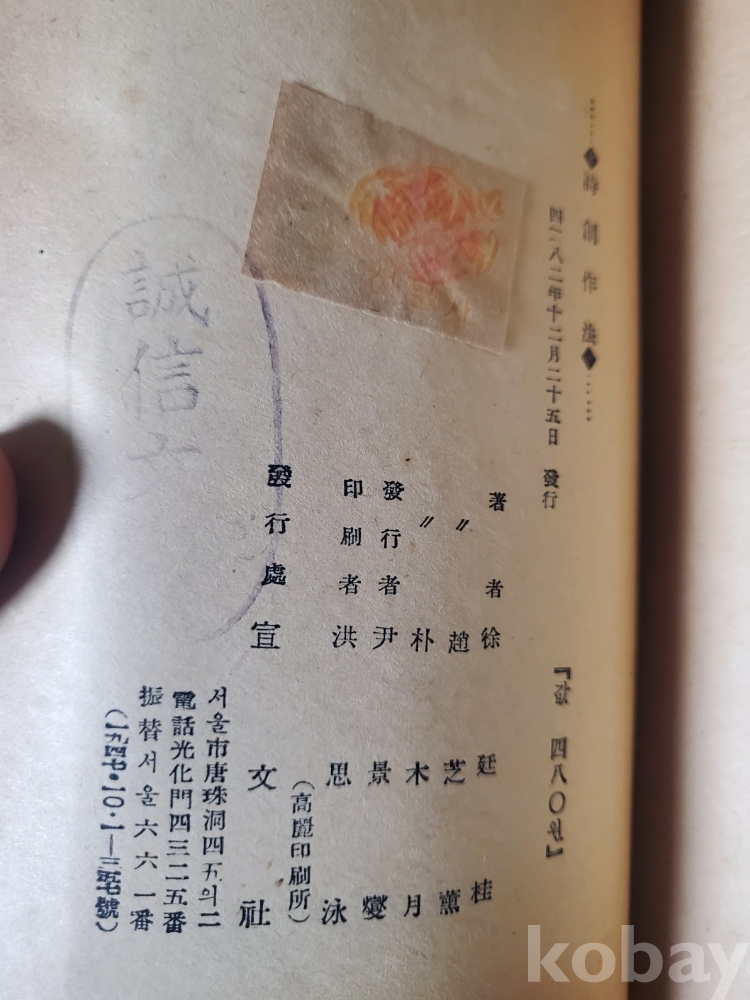 詩創作法
四二八二年十二月二十五日 發行
『값 四八〇원』
著者 徐廷柱
〃 趙芝薰
〃 朴木月
發行者 尹景燮
印刷者 洪思泳
(高麗印刷所)
發行處 宣文社
서울市唐珠洞四五의二
電話光化門四三二五番
振替서울六六一番
誠信
kobay